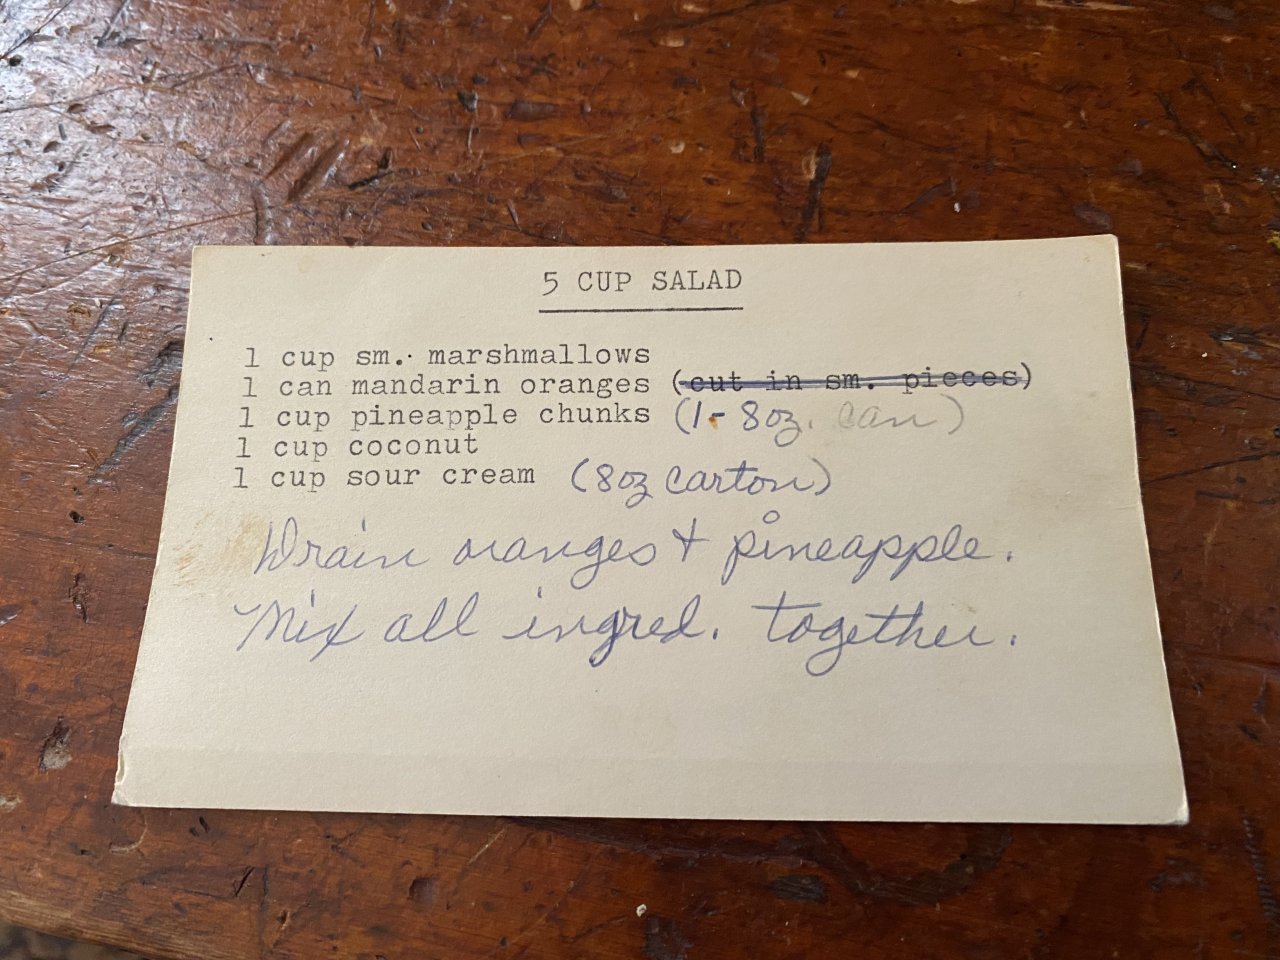 5 CUP SALAD
1 cup sm. marshmallows
1 can mandarin oranges (cut in sm. pieces)
1 cup pineapple chunks (1- 8oz. can)
1 cup coconut
1 cup sour cream (8oz carton)
Drain oranges + pineapple.
Mix all ingred. together.